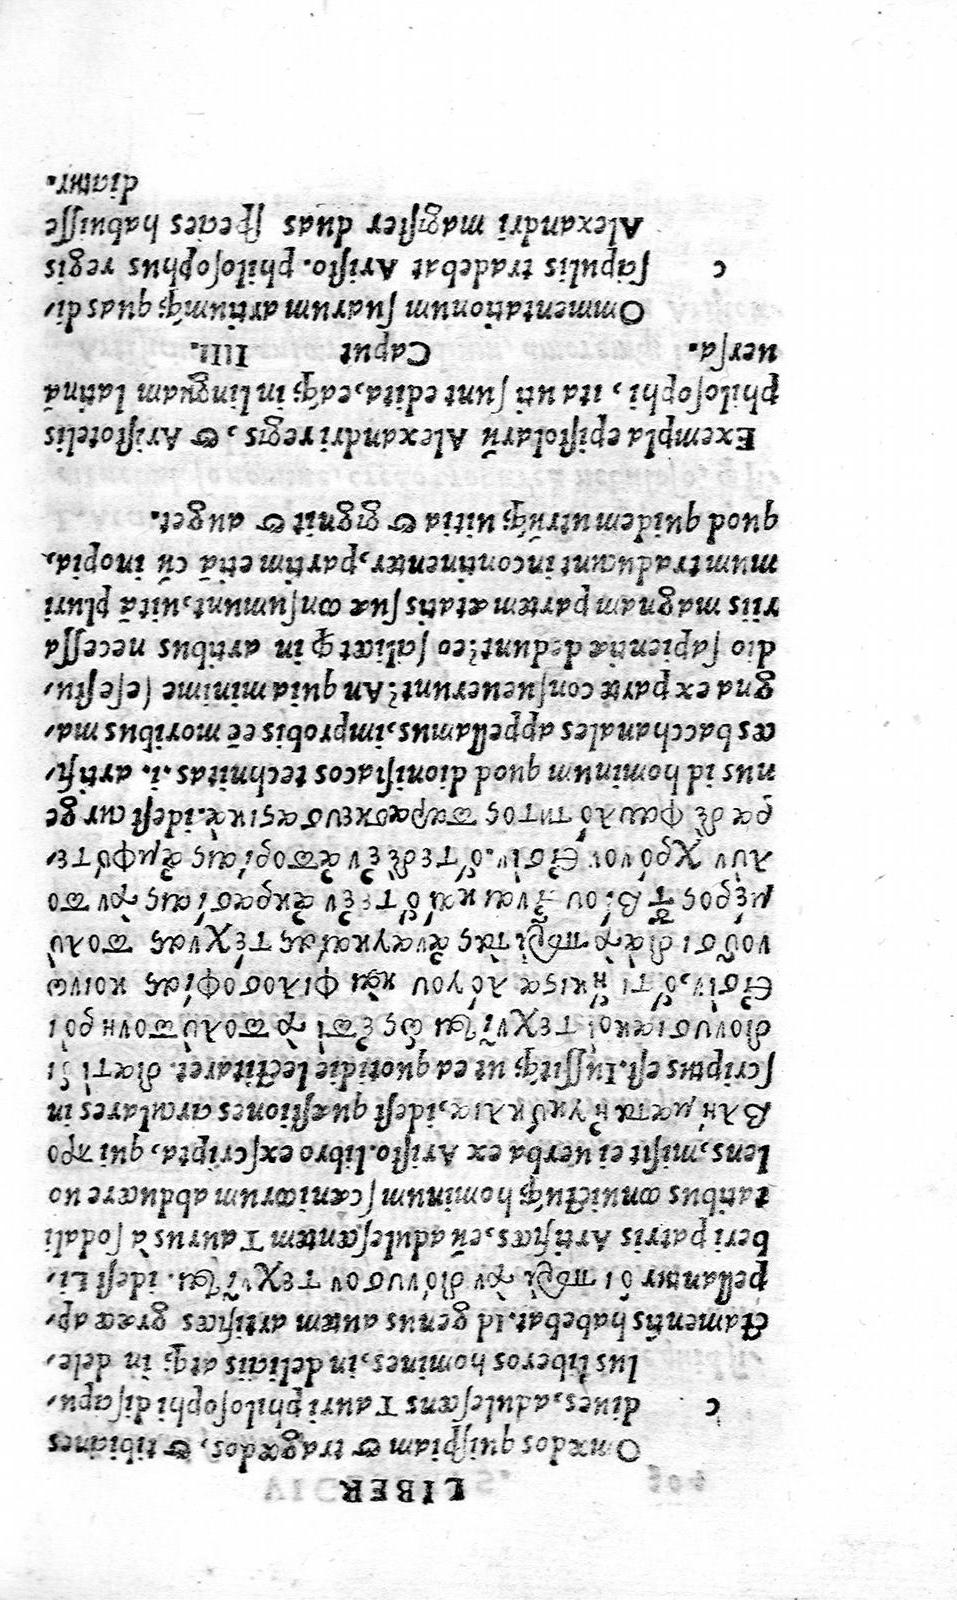 LIBER
Omœdos quispiam & tragœdos, & tibicines
c diues, adulescens Tauri philosophi discipu,
lus liberos homines, in deliciis atq; in dele,
ctamentis habebat. Id genus autem artifices græce ap,
pellantur οἱ περὶ τὸν διόνυσον τεχνῖται. idest Li,
beri patris Artifices, eũ adulescentem Taurus à sodali
tatibus conuictuq́; hominum scænicorum abducere uo
lens, misit ei uerba ex Aristo. libro exscripta, qui προ
βλήματα ἐγκύκλια, idest quæstiones circulares in
scriptus est. Iussitq́; ut ea quotidie lectitaret. διατί οἱ
διονυσιακοὶ τεχνῖται ὡς ἐπὶ τὸ πολὺ πονηροί
εἰσίν, ὅτι ἥκιστα λόγου καὶ φιλοσοφίας κοινω
νοῦσι διὰ τὸ περὶ τὰς ἀναγκαίας τέχνας πολὺ
μέρος τοῦ βίου εἶναι καὶ ὅτι ἐν ἀκρασίαις τὸν πο
λὺν χρόνον εἰσίν. ὁτὲ δὲ ἐν ἀπορίαις ἀμφότε,
ρα δὲ φαυλότητος παρασκευαστικά. idest cur ge
nus id hominum quod dionisiacos technitas .i. artifi,
ces bacchanales appellamus, improbis eẽ moribus ma,
gna ex parte consueuerunt? An quia minime sese stu,
dio sapientiæ dedunt? eo scilicet ꝙ in artibus necessa
riis magnam partem ætatis suæ consumunt, uitã pluri
mum traducunt incontinenter, partim etiã cũ inopia,
quod quidem utrũq́; uitia & gignit & auget.
Exempla epistolarũ Alexandri regis, & Aristotelis
philosophi, ita uti sunt edita, eaq́; in linguam latinã
uersa. Caput IIII.
Ommentationum suarum artiumq́; quas di,
c scipulis tradebat Aristo. philosophus regis
Alexandri magister duas species habuisse
dicitur.